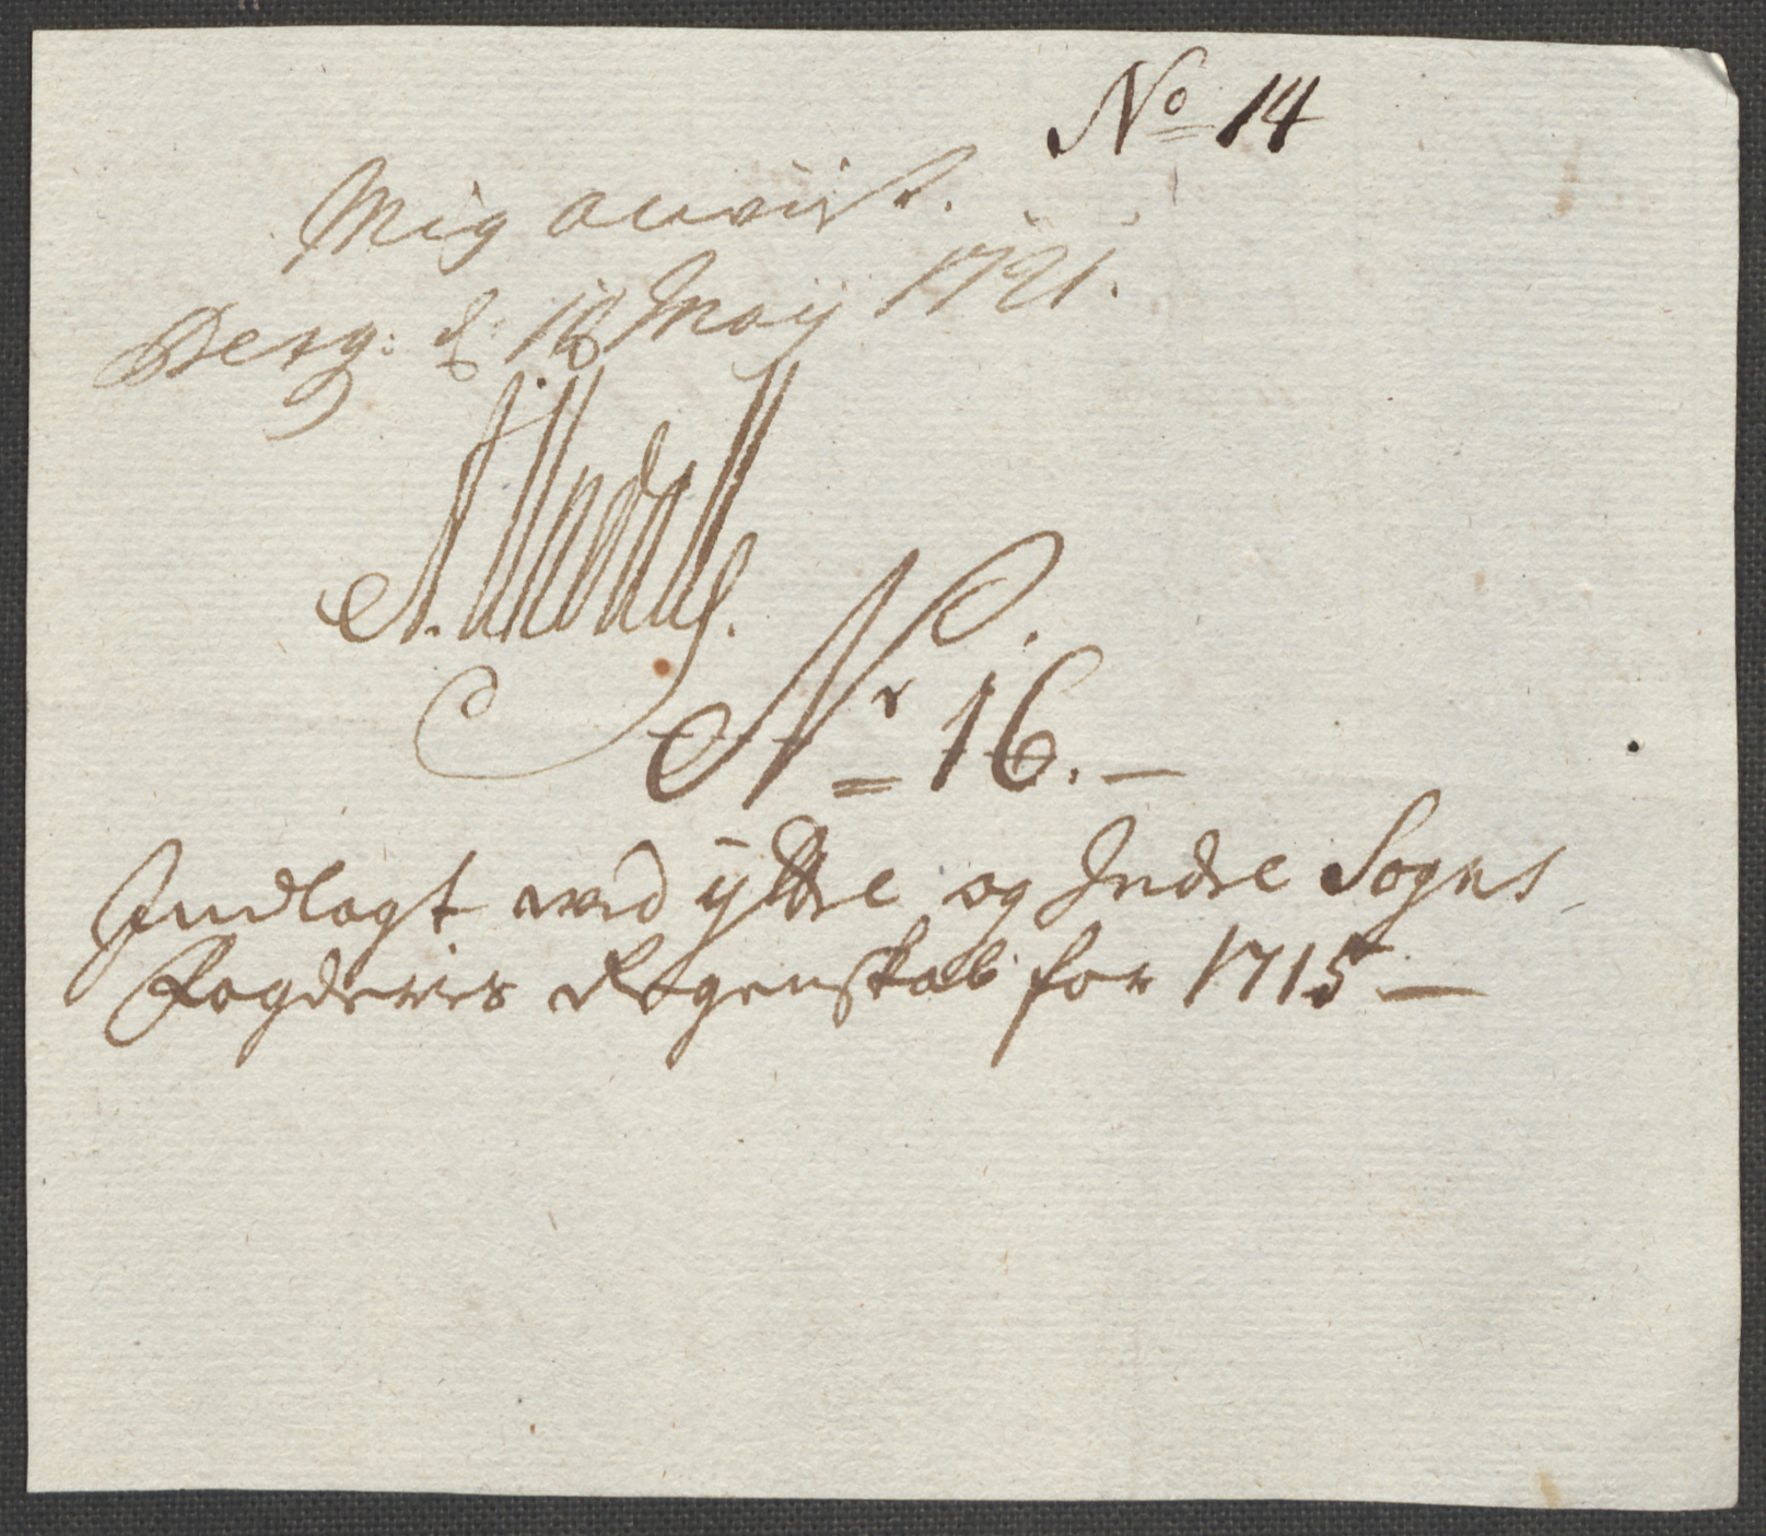 No 14
Mig anvist.
Berg: d: 18 Maij 1721.
Nr 16. —
Indlagt ved ÿttre og Indre Sogns
Fogderies Regenskab for 1715 —